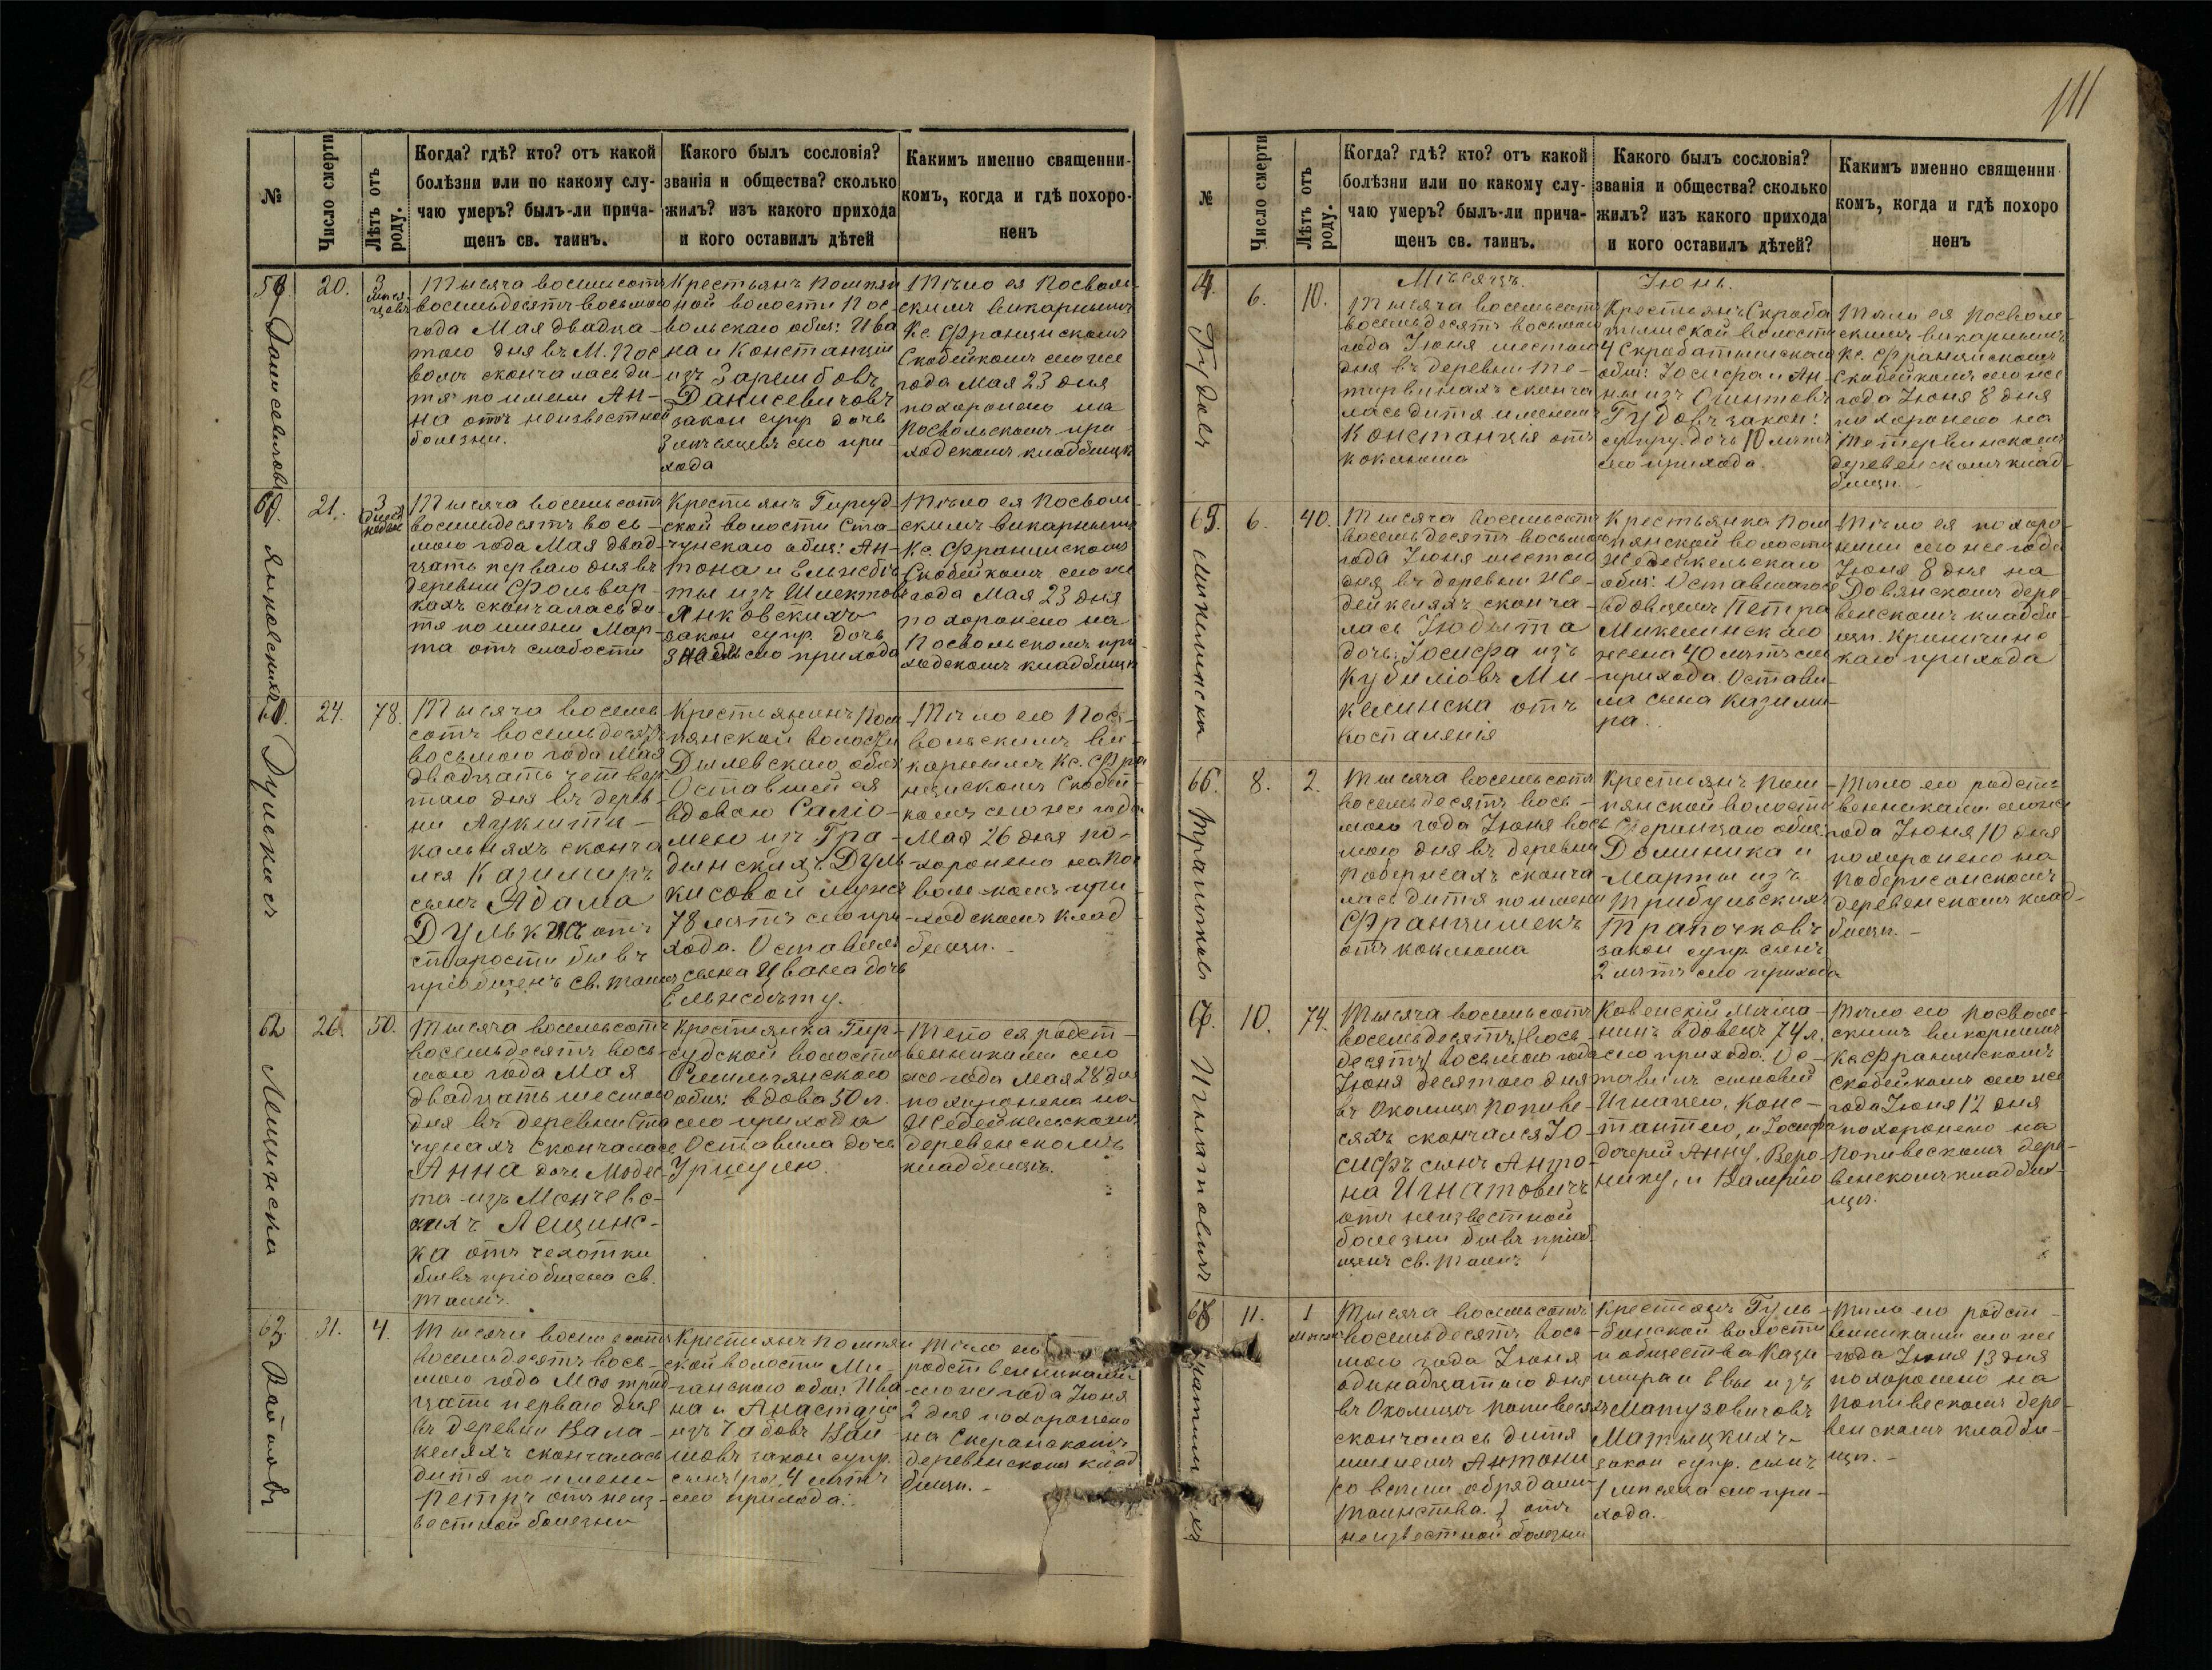 111
№
Число смерти
Лѣтъ отъ
роду.
Когда? гдѣ? кто? отъ какой
болѣзни или по какому слу-
чаю умеръ? былъ-ли прича-
щенъ св. таинъ.
Какого былъ сословія?
званія и общества? сколько
жилъ? изъ какого прихода
и кого оставилъ дѣтей
Какимъ именно священни-
комъ, когда и гдѣ похоро-
ненъ
20.
3
Тысяча восемьсотъ
восемьдесятъ восьмого
года Мая двадца-
того дня въ М. Пос
воль скончалась ди-
тя по имени Ан-
на отъ неизвестной
болезни.
Крестьянъ Помпян
ной волости Пос-
вольскаго общ: Ива
на и Констанціи
изъ Зарембовъ
Данисевичовъ
закон супр дочь
3 месяцевъ сего при-
хода
Тѣло ея Посволь-
скимъ викарнымъ
Кс. Францискомъ
Скобейкомъ сего же
года Мая 23 дня
похоронено на
Посвольскомъ при-
ходскомъ кладбищѣ
21.
3
Тысяча восемьсотъ
восемьдесятъ вось-
мого года Мая двад-
цать перваго дня въ
деревни Фольвар-
кахъ скончалась ди-
тя по имени Мар-
та отъ слабости
Крестьянъ Гируд-
ской волости Ста-
чунскаго общ: Ан-
тона и Ельжбѣ-
ты изъ Шлектовъ
Янковскихъ
закон супр. дочь
сего прихода
Тѣло ея Посволь-
скимъ викарнымъ
Кс. Францискомъ
Скобейкомъ сего же
года Мая 23 дня
похоронено на
Посвольскомъ при-
ходскомъ кладбищѣ
24.
78.
Тысяча восемь
сотъ восемьдесятъ
восьмого года Мая
двадцать четвер
таго дня въ дерев-
ни Лукшти-
кальняхъ сконча
лся Казимиръ
сынъ Адама
Дулькисъ отъ
старости бывъ
пріобщенъ св. таинъ
Крестьянинъ Пом
пянской волости
Дылевскаго общ
Оставшейся
вдовою Саліо-
мею изъ Гра-
дынскихъ Дуль
кисовой мужъ
78 летъ сего при
хода. Оставилъ
сына Ивана дочь
Ельжбѣту.
Тѣло его Пос-
вольскимъ ви-
карнымъ Кс. Фра
нцискомъ Скобей-
комъ сего же года
Мая 26 дня по-
хоронено на Пос
вольскомъ при-
ходскомъ клад
бищѣ.
62
26.
50.
Тысяча восемьсотъ
восемьдесятъ вось-
мого года Мая
двадцать шестого
дня въ деревни Ста
чунахъ скончалась
Анна дочь Модес-
та изъ Мончевс-
кихъ Лещинс-
ка отъ чехотки
бывъ пріобщена св.
таинъ.
Лещинска
Крестьянка Гир-
судской волости
Смильгянскаго
общ: вдова 50 л.
сего прихода
Оставила дочь
Уршулю.
Тело ея родст-
венниками сего
же года Мая 28 дня
похоронена на
Жедейкельскомъ
деревенскомъ
кладбищѣ.
63
31.
4.
Тысяча восемьсотъ
восемьдесятъ вось-
мого года Мая трид-
цать перваго дня
въ деревни Вала-
келяхъ скончалась
дитя по имени
Петръ отъ неиз-
вестной болезни
Крестьянъ Помпян
ской волости Ми-
ганскаго общ: Ива
на и Анастазіи
изъ Чабовъ Вай
шовъ закон супр.
сынъ 4 летъ
сего прихода.
Тѣло его
родственниками
сего же года Іюня
2 дня похоронено
на Скеранскомъ
деревенскомъ клад
бищѣ.
№
Число смерти
Лѣтъ отъ
роду.
Когда? гдѣ? кто? отъ какой
болѣзни или по какому слу-
чаю умеръ? былъ-ли прича-
щенъ св. таинъ.
Какого былъ сословія?
званія и общества? сколько
жилъ? изъ какого прихода
и кого оставилъ дѣтей?
Какимъ именно священни
комъ, когда и гдѣ похоро
ненъ
Мѣсяцъ. Іюнь.
64.
6.
10.
Гудовъ
Тысяча восемьсотъ
восемьдесятъ восьмого
года Іюня шестого
дня въ деревни Те-
тирвинахъ сконча
лась дитя именемъ
Констанція отъ
коклюша
Крестьянъ Скроба
тишской волости
Скробатишскаго
общ: Іосифа и Ан-
ны изъ Олинтовъ
Гудовъ закон:
супру. дочь 10 летъ
сего прихода.
Тѣло ея Посволь-
скимъ викарнымъ
Кс. Францискомъ
Скобейкомъ сего же
года Іюня 8 дня
похоронено на
Тетервинскомъ
деревенскомъ клад-
бищѣ.
65.
6.
40.
Микелинска
Тысяча восемьсотъ
восемьдесятъ восьмого
года Іюня шестого
дня въ деревни Же-
дейкеляхъ сконча-
лась Іюдыта
дочь Іосифа изъ
Кубиліовъ Ми-
келинска отъ
воспаленія
Крестьянка Пом
пянской волости
Жедейкельскаго
общ: Оставшагося
вдовцемъ Петра
Микелинскаго
жена 40 летъ сего
прихода. Остави-
ла сына Казими-
ра.
Тѣло ея похоро-
нили сего же года
Іюня 8 дня на
Довянскомъ дере-
венскомъ кладби-
щѣ. Криничинс
каго прихода
66.
8.
2.
Трапочковъ
Тысяча восемьсотъ
восемьдесятъ вось-
мого года Іюня вось-
мого дня въ деревни
Побержахъ сконча
лась дитя по имени
Францишекъ
отъ коклюша
Крестьянъ Пом-
пянской волости
общ:
Доминика и
Марты изъ
Трибульскихъ
Трапочковъ
закон супр. сынъ
2 летъ сего прихода
Тѣло его родст-
венниками сего же
года Іюня 10 дня
похоронено на
Побержанскомъ
деревенскомъ клад-
бищѣ.
67.
10.
74.
Игнатовичъ
Тысяча восемьсотъ
восемьдесятъ (вось-
десятъ) восьмого года
Іюня десятого дня
въ Околицѣ Попиве-
сяхъ скончался Іо-
сифъ сынъ Анто-
на Игнатовичъ
отъ неизвестной
болезни бывъ пріоб
щенъ св. таинъ
Ковенскій Мѣща-
нинъ вдовецъ 74 л.
сего прихода. Ос-
тавилъ сыновей
Игнацего, Конс-
тантего, и Іосифа
дочерей Анну, Веро-
нику, и Валерію
Тѣло его Посволь-
скимъ викарнымъ
Кс Францискомъ
Скобейкомъ сего же
года Іюня 12 дня
похоронено на
Попивескомъ дере-
венскомъ кладби-
щѣ.
68
11.
1
Тысяча восемьсотъ
восемьдесятъ вось
мого года Іюня
одинадцатого дня
въ Околицѣ Попивесяхъ
скончалась дитя
именемъ Антони
(со всеми обрядами
таинства.) отъ
неизвестной болезни
Крестьянъ Гуль-
бинской волости
и общества Кази
мира и Евы изъ
Матузовичовъ
Матыцкихъ
закон супр. сынъ
1 месяца сего при-
хода.
Тѣло его родст-
венниками сего же
года Іюня 13 дня
похоронено на
Попивескомъ дере-
венскомъ кладби-
щѣ.